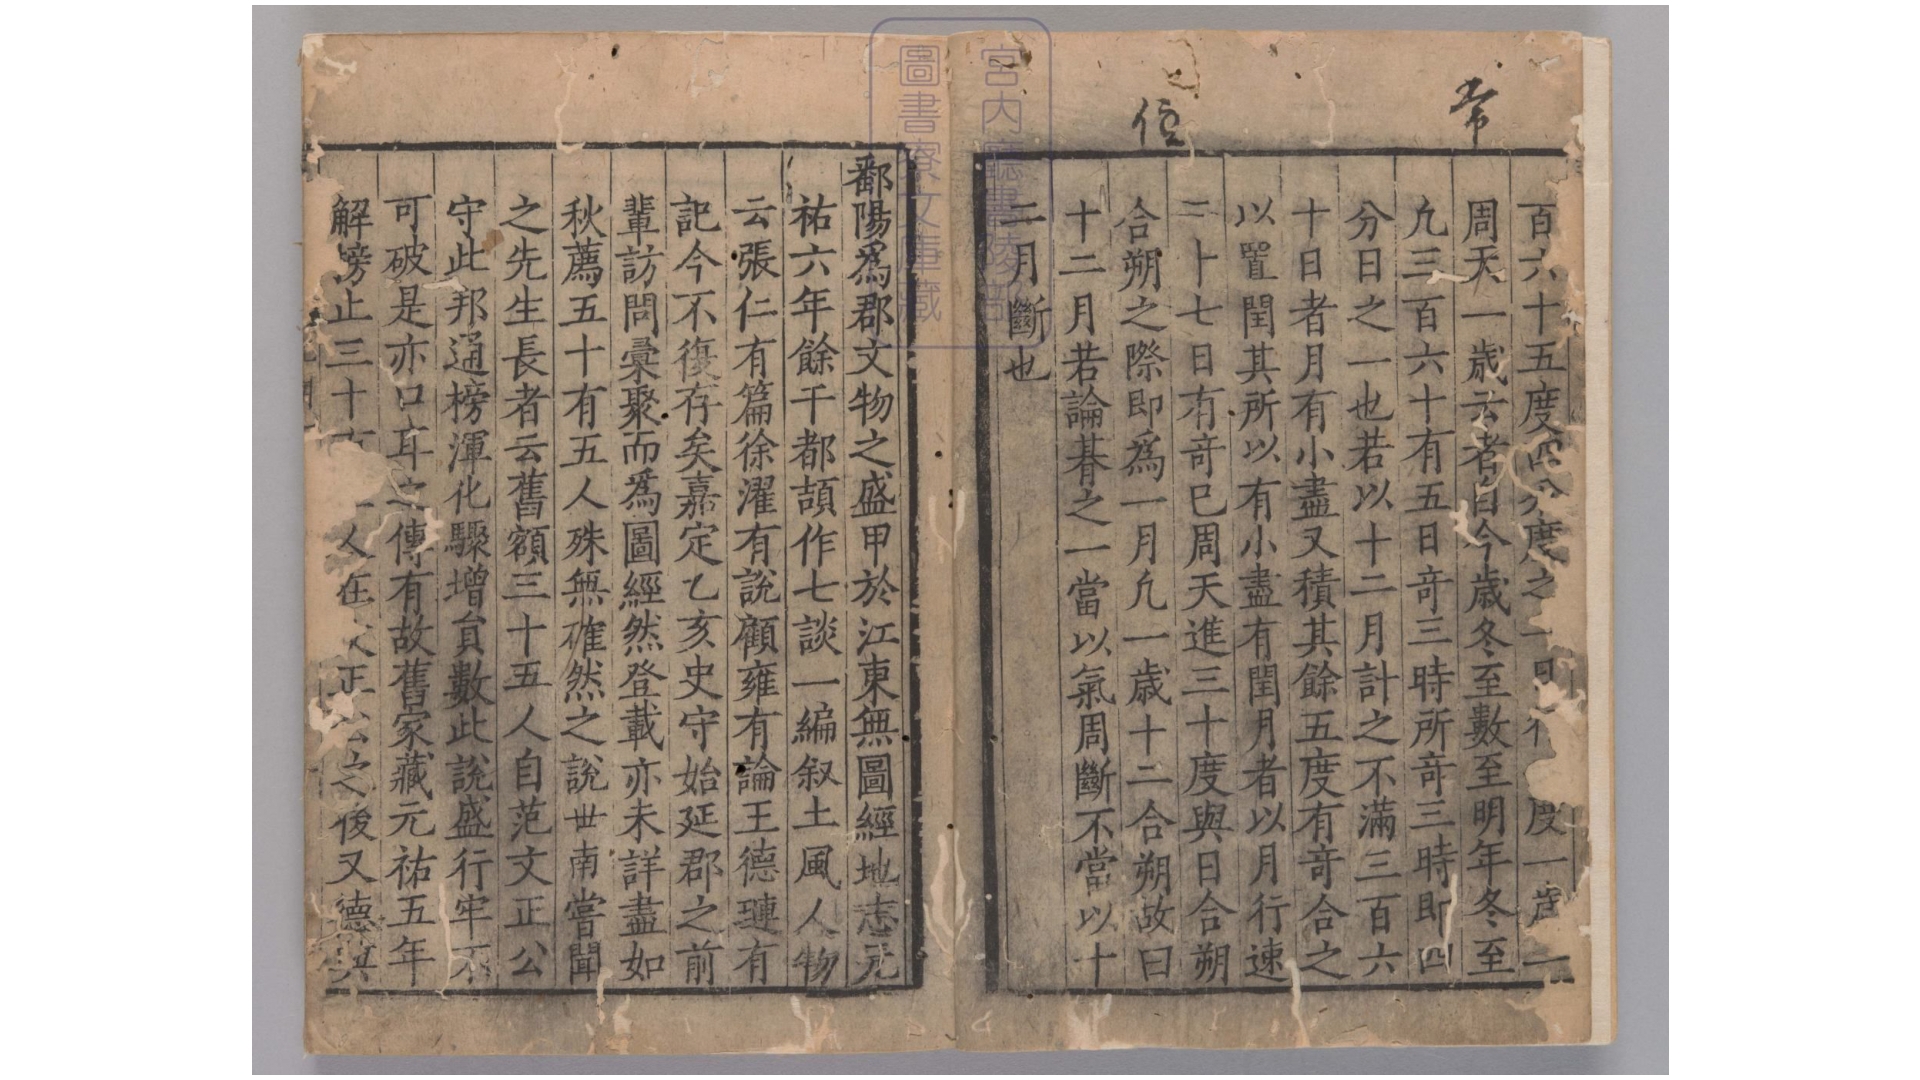 常
百六十五度四分度之一日行一度一歲一
周天一歲云者自今歲冬至數至明年冬至
凢三百六十有五日竒三時所竒三時即四
分日之一也若以十二月計之不滿三百六
十日者月有小盡又積其餘五度有竒合之
以置閏其所以有小盡有閏月者以月行速
二十七日有竒已周天進三十度與日合朔
合朔之際即爲一月凢一歲十二合朔故曰
十二月若論朞之一當以氣周斷不當以十
二月斷也
宮内廳書陵部
圖書寮文庫藏
鄱陽爲郡文物之盛甲於江東無圖經地志元
祐六年餘干都頡作七談一編叙土風人物
云張仁有篇徐濯有說顧雍有論王德璉有
記今不復存矣嘉定乙亥史守始延郡之前
輩訪問彙聚而爲圖經然登載亦未詳盡如
秋薦五十有五人殊無確然之說世南嘗聞
之先生長者云舊額三十五人自范文正公
守此邦通榜渾化驟增貟數此說盛行牢不
可破是亦口耳之傳有故舊家藏元祐五年
解牓止三十人在文正公之後又德興